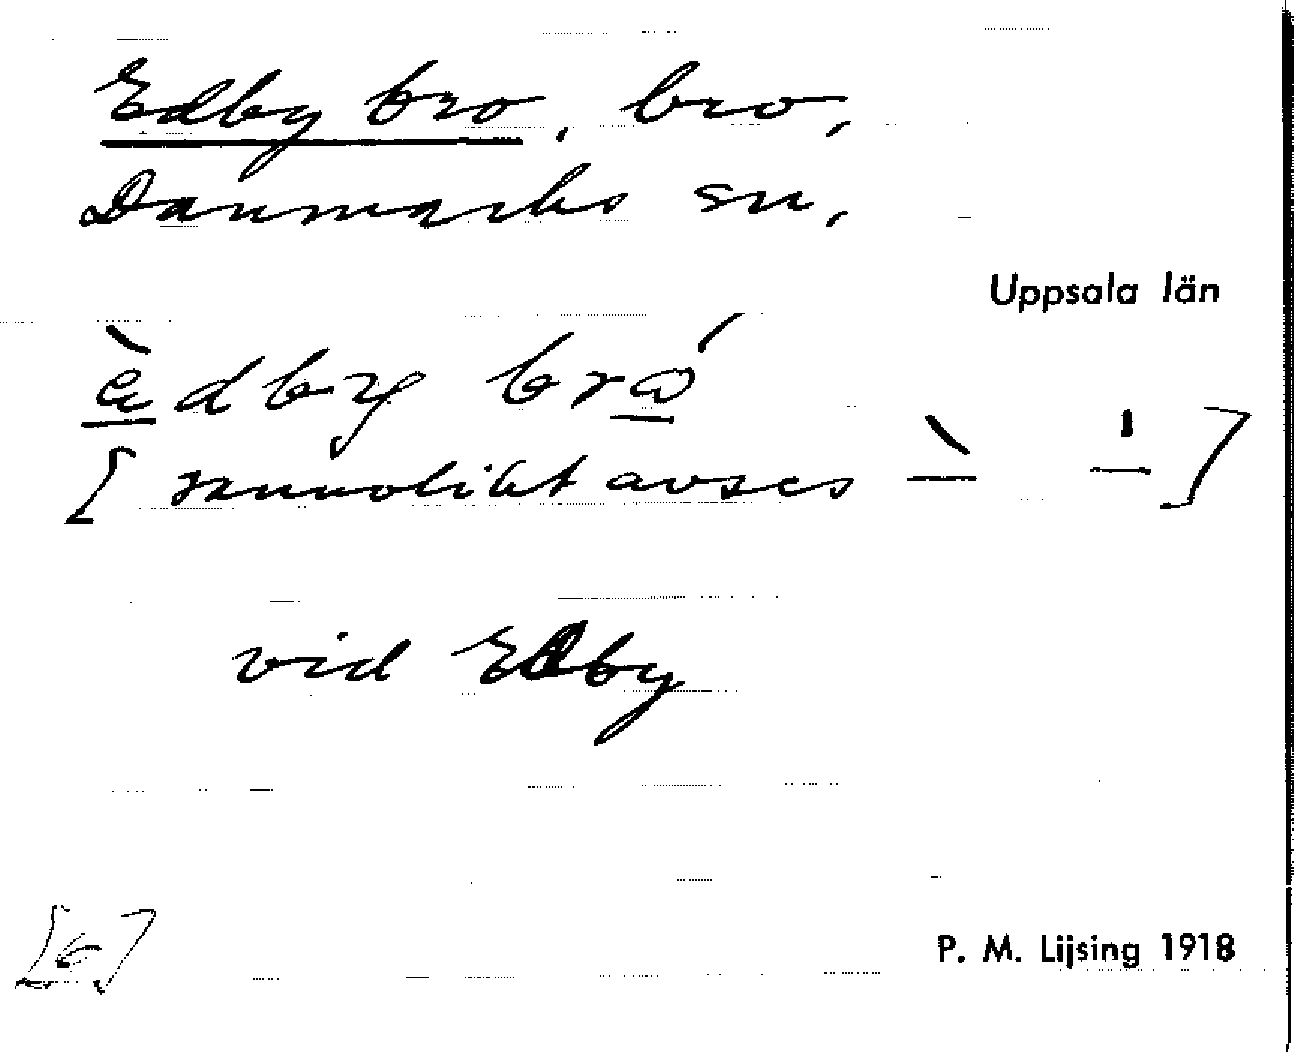 Edby bro, bro,
Danmarks sn,
Uppsala län
[sannolikt avses ` ']
vid Edby
P. M. Lijsing 1918